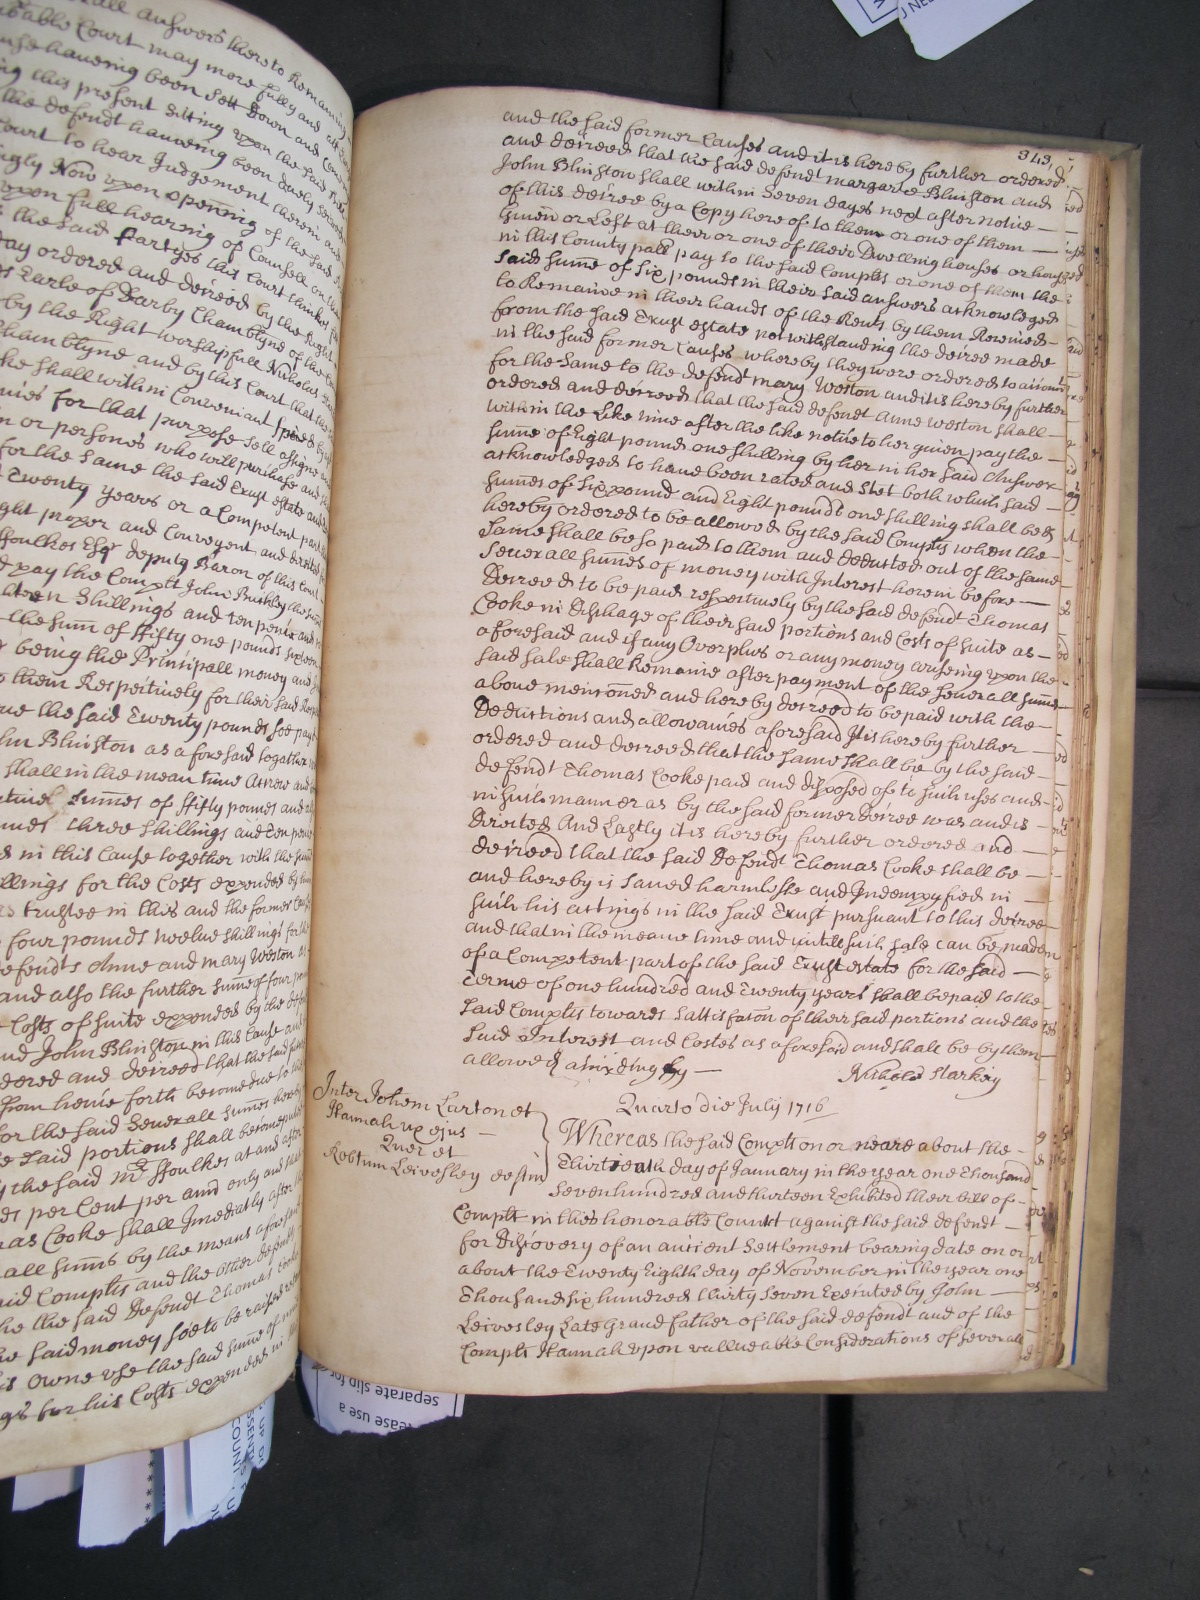 all answers there to Remaining
table Court may more fully and att
use haueing been Sett Down and Com
ing this present Sitting upon the said
the defendt haueing been duely Serued
Court to hear Judgement therein
ngly Now upon opening of the said
upon full hearing of Councell on
the said Partyes this Court thinkes
ay ordered and decreed by the Right
Earle of Darby Chamblyne of the
by the Right worshipfull Nicholas
hamblyne and by this Court that the
ke shall within Convenient
uies for that purpose sell Assigne
n or persones who will purchase
for the same the said Trust estate
Twenty years or a Competent part
ght proper and Convenyent and
ffoulkes Esqr deputy Baron of this Court
pay the Complt John Buckley the sume
teen Shillings and ten pence and
the sum of ffifty one pounds sixteen
being the Principall money and
them Respectiuely for their said
ue the said Twenty pounds soe payd
hn Blinston as aforesaid together
shall in the mean time Accrow and
sumes of ffifty pounds and
three shillings and ten pence
in this Cause together with the
illings for the Costs expended by
trustee in this and the former
four pounds twelue shillings for
efendts Anne and mary Weston
and also the further sume of four
Costs of suite expended by the
nd John Blinston in this Cause and
dered and decreed that the said
from hence forth become due to
for the said Seuerall sumes
said portions shall become
the said mr ffoulkes at and after
per Cent per ann only and
as Cooke shall Imediatly after
all sums by the means aforesaid
id Complts and the other
he the said Defendt Thomas
e said money soe to be raised
is owne use the said sume of
gs for his Costs expended in
343
and the said former Causes and it is hereby further ordered
and decreed that the said defendt margarte Blinston and
John Blinston shall within Seven dayes next after notice
of this decree by a Copy here of to them or one of them
Giuen or Left at their or one of their Dwelling houses or houses
in this County pall pay to the said Complts or one of them the
said sume of Six pounds in their said answers acknowledged
to Remaine in their hands of the Rents by them Receiued
from the said Trust estate notwithstanding the decree made
in the said former Causes whereby they were ordered to account
for the Same to the defendt mary Weston and it is hereby further
ordered and decreed that the said defendt Anne Weston shall
within the Like time after the like notice to her giuen pay the
sume of Eight pounds one shilling by her in her said Answer
acknowledged to haue been rated and Stet both which said
sumes of Six pound and Eight pounds one shilling shall be &
hereby ordered to be allowed by the said Complts when the
Same shall be so paid to them and deducted out of the same
Seuerall sumes of money with Interest herein before
Decreed to be paid respectiuely by the said defendt Thomas
Cooke in Discharge of their said portions and Costs of suite as
aforesaid and if any Overplus or any money ariseing upon the
said sale shall Remaine after payment of the seuerall sumes
aboue mencioned and hereby decreed to be paid with the
Deductions and allowances aforesaid It is hereby further
ordered and decreed that the same shall be by the said
defendt Thomas Cooke paid and disposed of to such uses and
in such manner as by the said former Decree was and is
directed And Lastly it is hereby further ordered and
decreed that the said Defendt Thomas Cooke shall be
and hereby is saued harmlesse and Indempnyfied in
such his actings in the said Trust pursuant to this decree
and that in the meane time and untill such sale can be made
of a Competent part of the said Trust estate for the said
Terme of one hundred and Twenty years shall be paid to the
said Complts towards Sattisfaccon of their said portions and the
said Interest and Costes as aforesaid and shall be by them
allowed accordingly
Nicholas Starkey
Quarto die July 1716
Inter Johem Larton et
Hannah ux ejus
Quer et
Robtum Leivesley deftm
Whereas the said Complt on or neare about the
Thirtieath day of January in the year one Thousand
Seven hundred and thirteen Exhibited their bill of
Complt in this honorable Count against the said defendt
for Discovery of an ancient Settlement bearing date on or
about the Twenty Eighth day of November in the year one
Thousand six hundred thirty seven Executed by John
Leivesley Late Grand father of the said defendt and of the
Complt Hannah upon vallueable Considerations of severall
separate slip for
ease use a